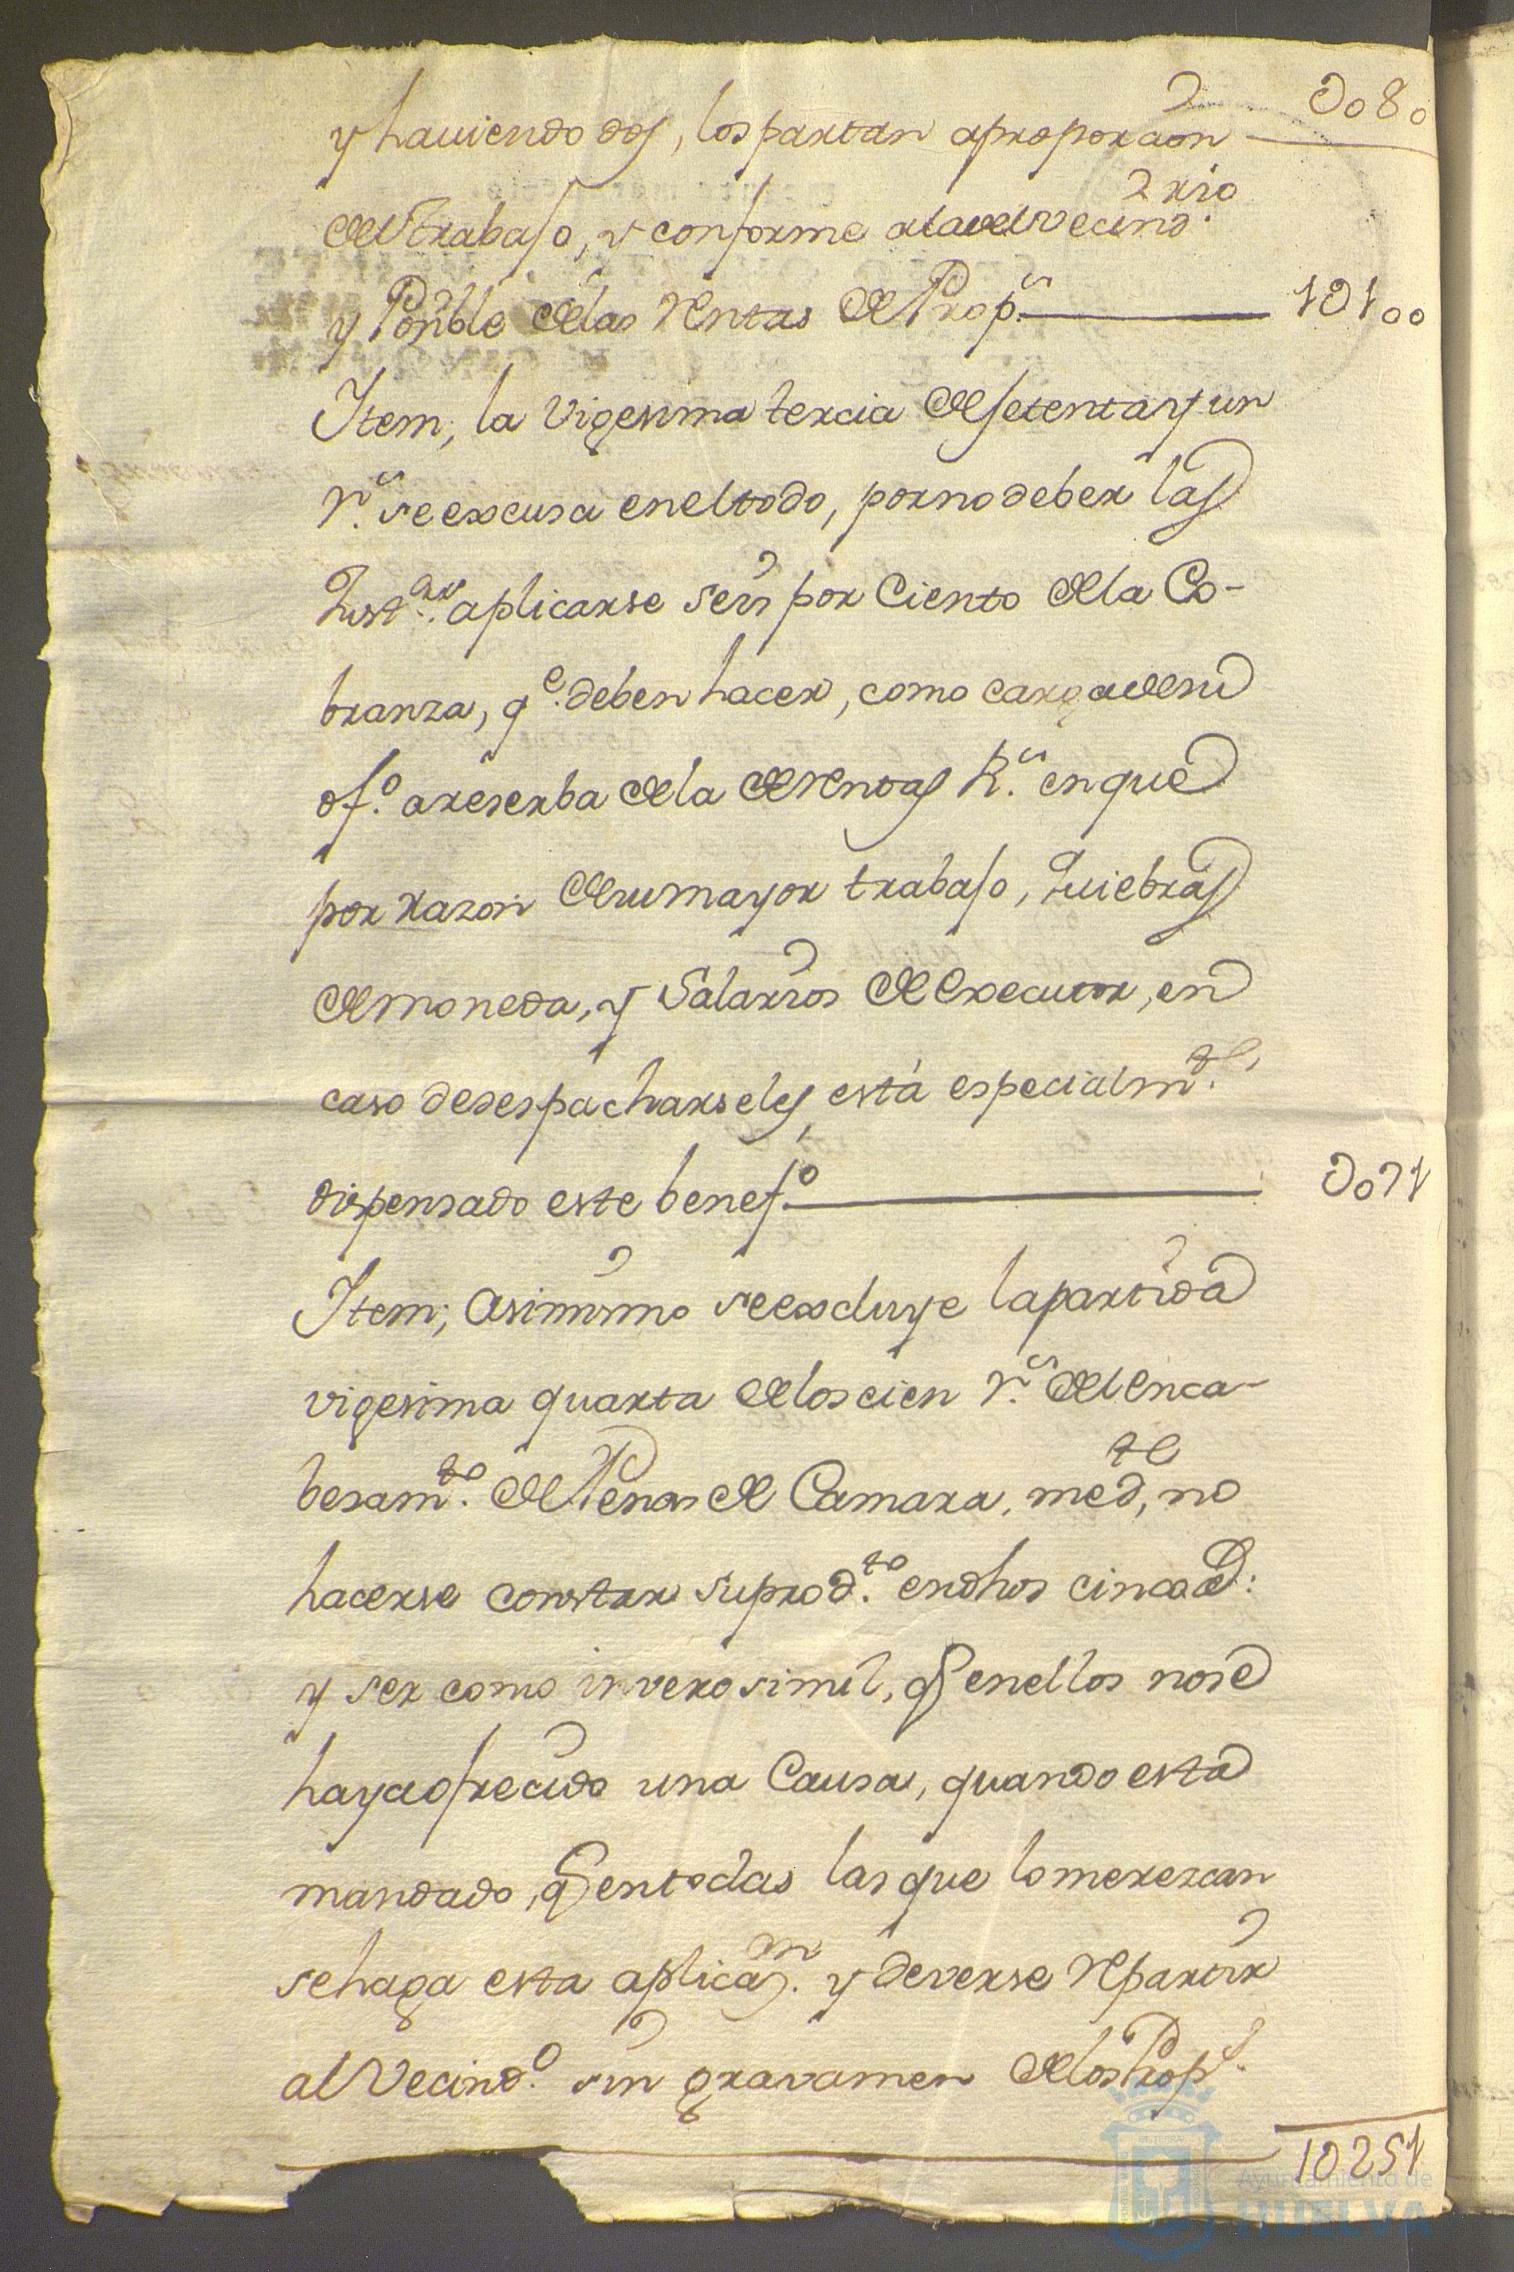 y haviendo dos, los partan aproporcion — D080
del trabajo, y conforme ala del vecind.rio
y Poñble delas Rentas de Prop.s — 1D100
Item, la Vigesima tercia de setenta y un
r.s se excusa enel todo, por no deber las
Just.as aplicarse seis por Ciento dela Co-
branza, q.e deben hacer, como cargo de su
of.o a reserba dela de Rentas R.s en que
por razon de su mayor trabajo, Quiebras
de moneda, y Salarios de Executor, en
caso de despacharseles, está especialm.te
dispensado este benef.o — D071
Item; asimismo se excluye la partida
vigesima quarta de los cien r.s del enca-
besam.to de Penas de Camara, med.te no
hacerse constar su prod.to en dhos cinco a.s:
y ser como inverosimil, q.e en ellos no se
haya ofrecido una Causa, quando está
mandado, q.e en todas las que lo merezcan
se haga esta aplicaz.on y deverse repartir
al Vecind.o sin gravamen de los Prop.s
1D251
Ayuntamiento de
HUELVA